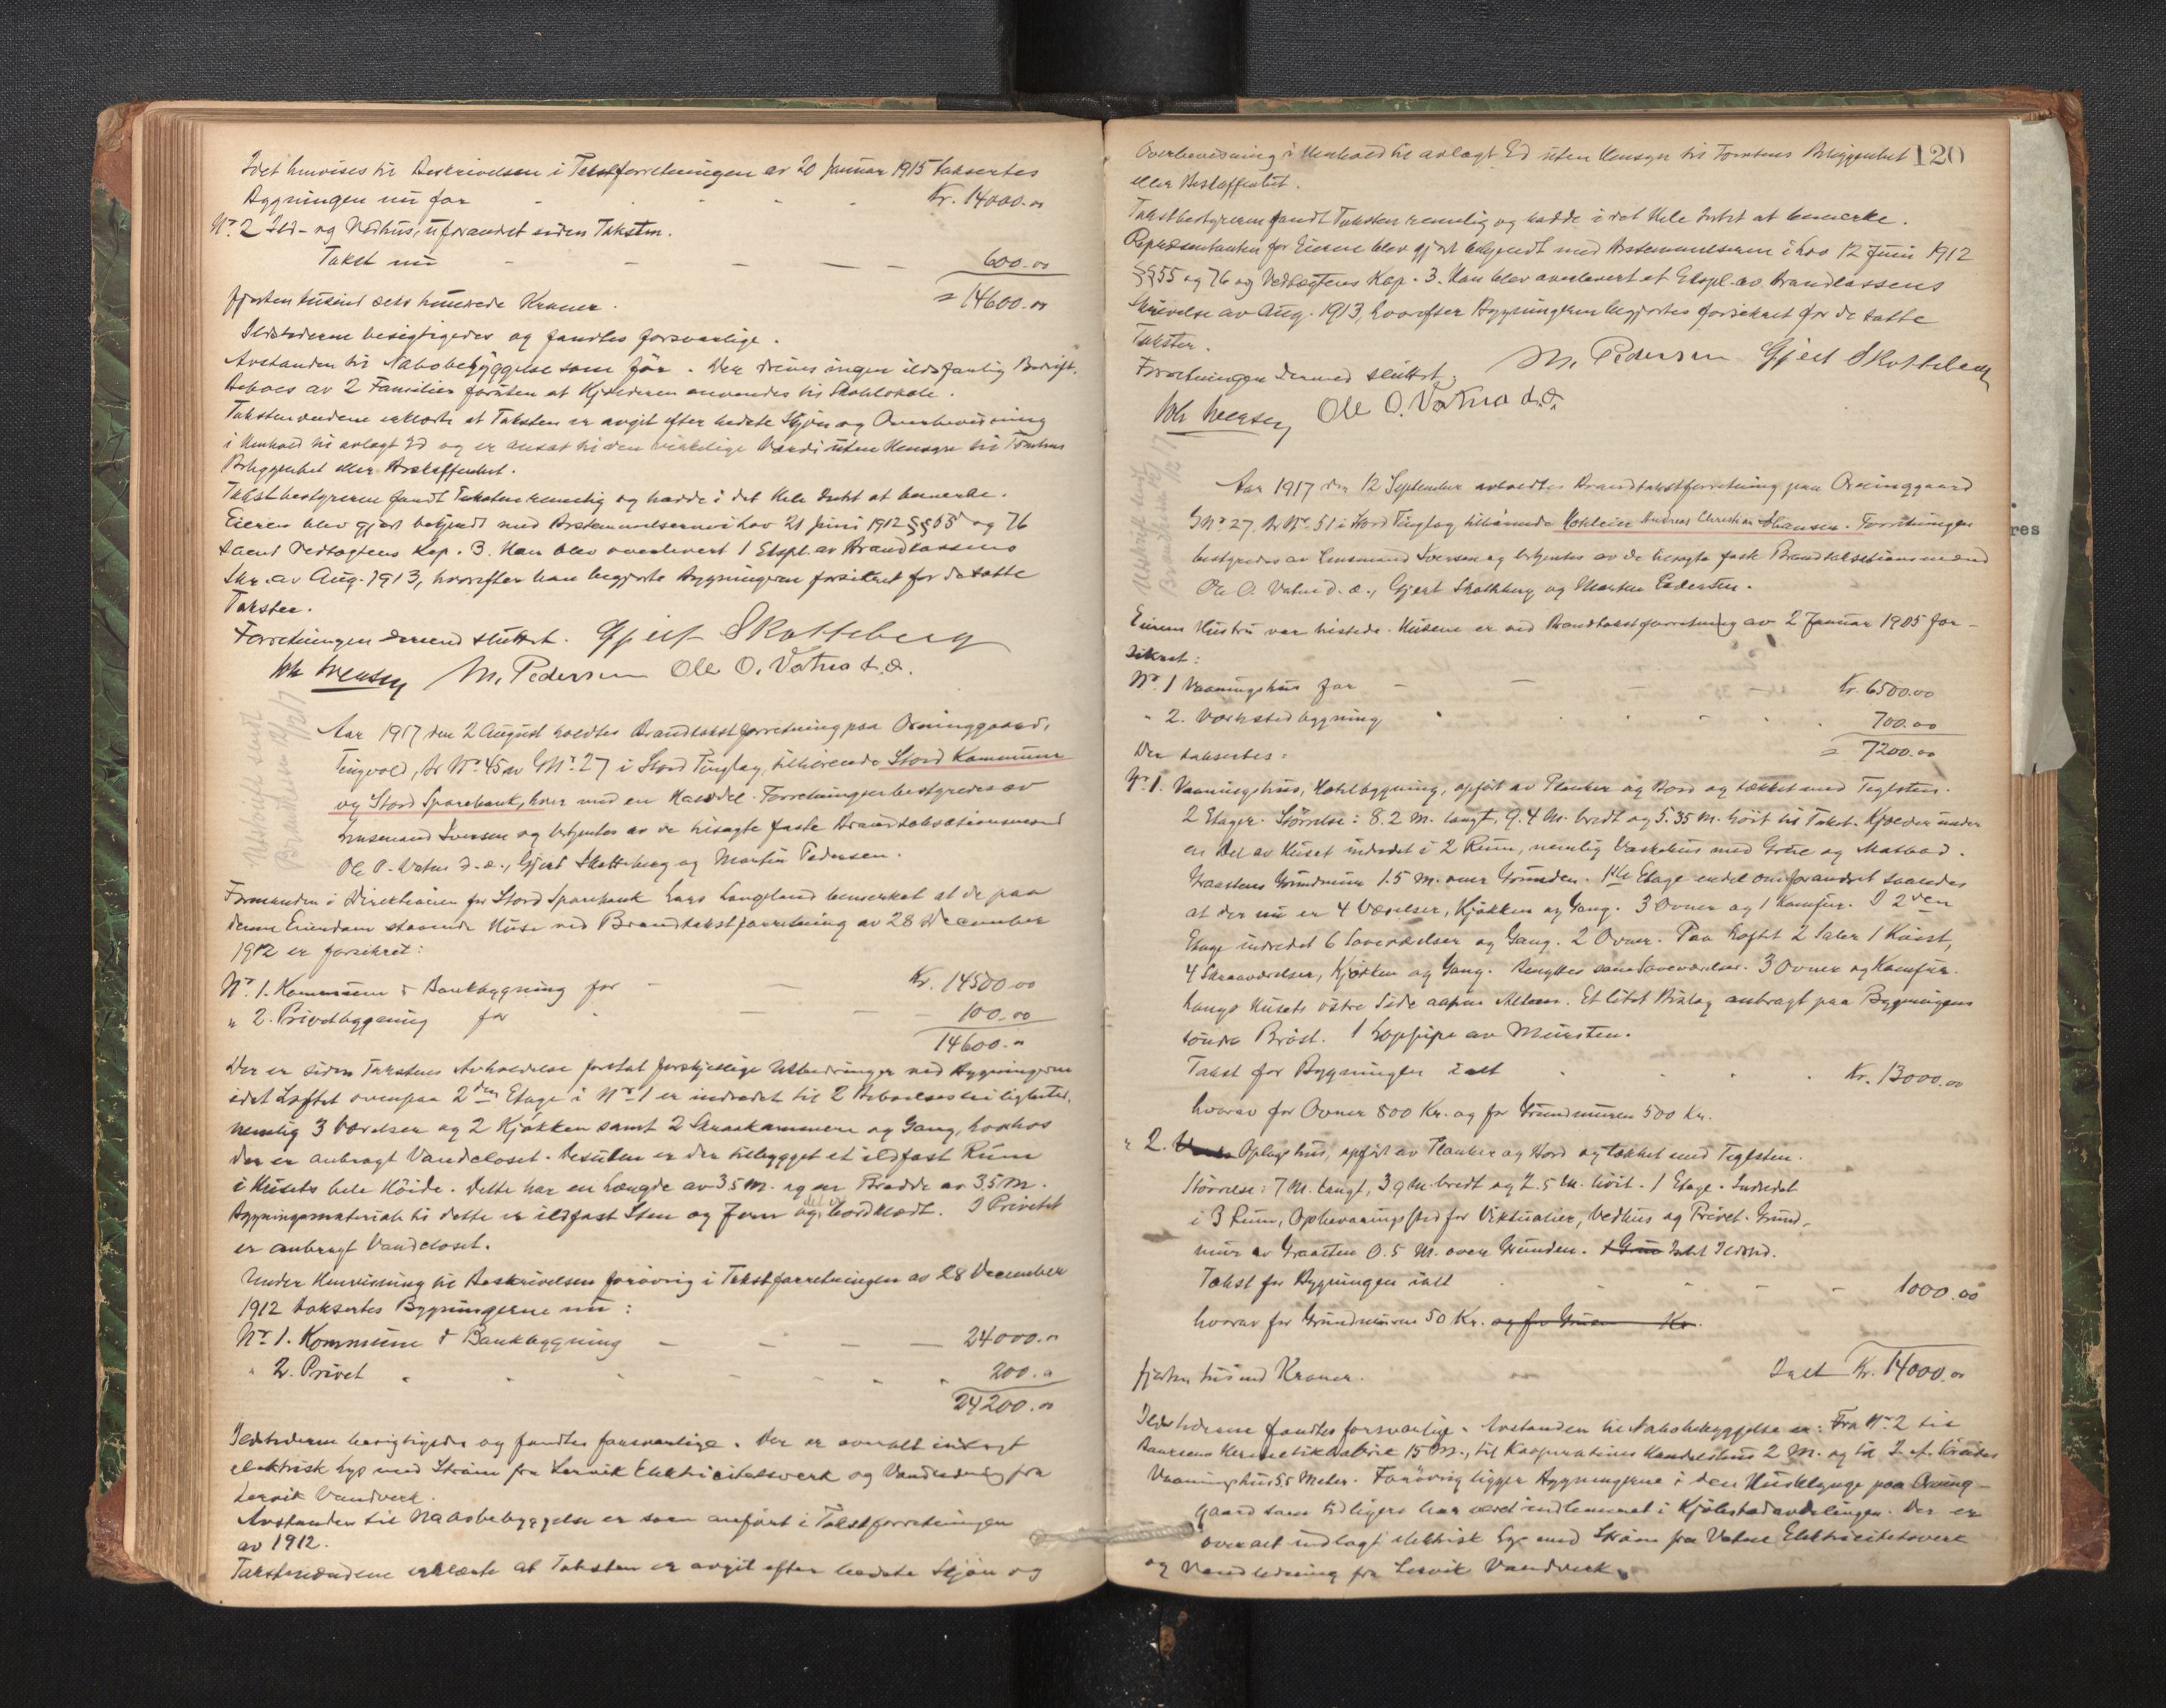 Idet henvises til Beskrivelsen i Takstforretningen av 20 Januar 1915 taksertes
Bygningen nu for - - - - Kr. 14000.00
No. 2 Ild- og Vedhus, uforandret siden Taksten.
Takst nu - - - - - 600.00
fjorten tusind seks hundrede Kroner. = 14600.00
Ildstederne besigtigedes og fandtes forsvarlige.
Avstanden til Nabobebyggelse som før. Der drives ingen ildsfarlig Bedrift.
Beboes av 2 Familier foruten at Kjælderen anvendes til Skolelokale.
Takstmændene erklærte at Taksten er avgit efter bedste Skjøn og Overbevisning
i Henhold til avlagt Ed og er ansat til den virkelige Værdi uten Hensyn til Tomtens
Beliggenhet eller Beskaffenhet.
Takstbestyreren fandt Taksten rimelig og hadde i det Hele Intet at bemerke.
Eieren blev gjort bekjendt med Bestemmelserne i Lov 21 Juni 1912 §§ 55 og 76
samt Vedtægtens Kap. 3. Han blev overlevert 1 Expl. av Brandkassens
Skr. av Aug. 1913, hvorefter han begjærte Bygningerne forsikret for de satte
Takster.
Forretningen dermed sluttet. Gjert Skotteberg
Joh Iversen M. Pedersen Ole O. Vatna d.æ.
Utskrift sendt
Brandkassen
Aar 1917 den 2 August holdtes Brandtakstforretning paa Orninggaard,
Tingvold, Br No. 45 av GNo. 27 i Stord Tinglag, tilhørende Stord Kommune
og Stord Sparebank, hver med en Halvdel. Forretningen bestyredes av
Lensmand Iversen og betjentes av de besagte faste Brandtakstationsmænd
Ole O. Vatna d.æ., Gjert Skotteberg og Martin Pedersen.
Formanden i Direktionen for Stord Sparebank Lars Langeland bemerket at de paa
denne Eiendom staaende Huse ved Brandtakstforretning av 28 December
1912 er forsikret:
No. 1. Kommune & Bankbygning for - - Kr. 14500.00
" 2. Privetbygning for - - - 100.00
14600.00
Der er siden Takstens Avholdelse foretat forskjellige Utbedringer ved Bygningerne
idet Loftet ovenpaa 2den Etage i No. 1 er indredet til 2 Beboelsesleiligheter,
nemlig 3 Værelser og 2 Kjøkken samt 2 Skraakammere og Gang, hvorhos
der er anbragt Vandcloset. Desuten er der tilbygget et ildfast Rum
i Husets hele Høide. Dette har en Længde av 3.5 M. og en Bredde av 3.5 M.
Bygningsmateriale til dette er ildfast Sten og Jern og bordklædt. I Privetet
er anbragt Vandcloset.
Under Henvisning til Beskrivelsen forøvrig i Takstforretningen av 28 December
1912 taksertes Bygningerne nu:
No. 1. Kommune & Bankbygning - - - - 24000.00
" 2. Privet - - - - - 200.00
24200.00
Ildstederne besigtigedes og fandtes forsvarlige. Der er overalt indlagt
elektrisk Lys med Strøm fra Lervik Elektricitetsverk og Vandledning fra
Lervik Vandverk.
Avstanden til Nabobebyggelse er som anført i Takstforretningen
av 1912.
Takstmændene erklærte at Taksten er avgit efter bedste Skjøn og
120
Overbevisning i Henhold til avlagt Ed uten Hensyn til Tomtens Beliggenhet
eller Beskaffenhet.
Takstbestyreren fandt Taksten rimelig og hadde i det Hele Intet at bemerke.
Repræsentanten for Eierne blev gjort bekjendt med Bestemmelserne i Lov 12 Juni 1912
§§ 55 og 76 og Vedtægtenes Kap. 3. Han blev overlevert et Expl. av Brandkassens
Skrivelse av Aug. 1913, hvorefter Bygningerne begjærtes forsikret for de satte
Takster.
Forretningen dermed sluttet. M. Pedersen Gjert Skotteberg
Joh Iversen Ole O. Vatna d.æ.
Utskrift sendt
Brandkassen
Aar 1917 den 12 September avholdtes Brandtakstforretning paa Orninggaard
GNo 27, BrNo. 51 i Stord Tinglag tilhørende Hoteleier Andreas Christian Johansen. Forretningen
bestyredes av Lensmand Iversen og betjentes av de besagte faste Brandtakstationsmænd
Ole O. Vatna d.æ., Gjert Skotteberg og Martin Pedersen.
Eierens Hustru var tilstede. Husene er ved Brandtakstforretning av 2 Januar 1905 for-
sikret:
No. 1 Vaaningshus for - - - Kr. 6500.00
" 2. Værkstedbygning - - - 700.00
Der taksertes: = 7200.00
No. 1. Vaaningshus, Hotelbygning, opført av Planker og Bord og tækket med Teglsten.
2 Etager. Størrelse: 8.2 M. langt, 9.4 M. bredt og 5.35 M. høit til Taket. Kjælder under
en Del av Huset indredet i 2 Rum, nemlig Vaskehus med Grue og Matbod.
Graastens Grundmur 1.5 M. over Grunden. 1ste Etage endel omforandret saaledes
at der nu er 4 Værelser, Kjøkken og Gang. 3 Ovner og 1 Komfur. I 2den
Etage indredet 6 Soveværelser og Gang. 2 Ovner. Paa Loftet 2 Saler 1 Kvist,
4 Skraaværelser, Kjøkken og Gang. Benyttes som Soveværelser. 3 Ovner og Komfur.
Langs Husets østre Side aapen Altan. Et litet Bislag anbragt paa Bygningens
søndre Brøst. 1 Loppipe av Mursten.
Takst for Bygningen ialt - - - Kr. 13000.00
hvorav for Ovner 800 Kr. og for Grundmuren 500 Kr.
" 2. Oplagshus, opført av Planker og Bord og tækket med Teglsten.
Størrelse: 7 M. langt, 3.9 M. bredt og 2.5 M. høit. 1 Etage. Indredet
i 3 Rum, Opbevaringssted for Viktualier, Vedhus og Privet. Grund-
mur av Graasten 0.5 M. over Grunden. Intet Ildsted.
Takst for Bygningen ialt - - - 1000.00
hvorav for Grundmuren 50 Kr. og for Gruen Kr.
fjorten tusind Kroner. Ialt Kr. 14000.00
Ildstederne fandtes forsvarlige. Avstanden til Nabobebyggelse er: Fra No. 2 til
Hermetikfabrik 15 M., til Kooperativens Handelshus 2 M. og til
Vaaningshus 5.5 Meter. Forøvrig ligger Bygningerne i den Husklynge paa Orning-
gaard som tidligere har været indlemmet i Kjøbstadavdelingen. Der er
overalt indlagt elektrisk Lys med Strøm fra Vatne Elektricitetsverk
og Vandledning fra Lervik Vandverk.
res